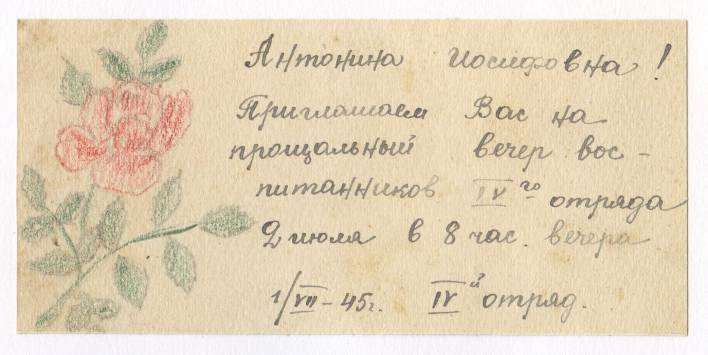 Антонина Иосифовна!
Приглашаем Вас на
прощальный вечер вос-
питанников IV го отряда
2 июля в 8 час. вечера
1/VII-45г. IV й отряд.